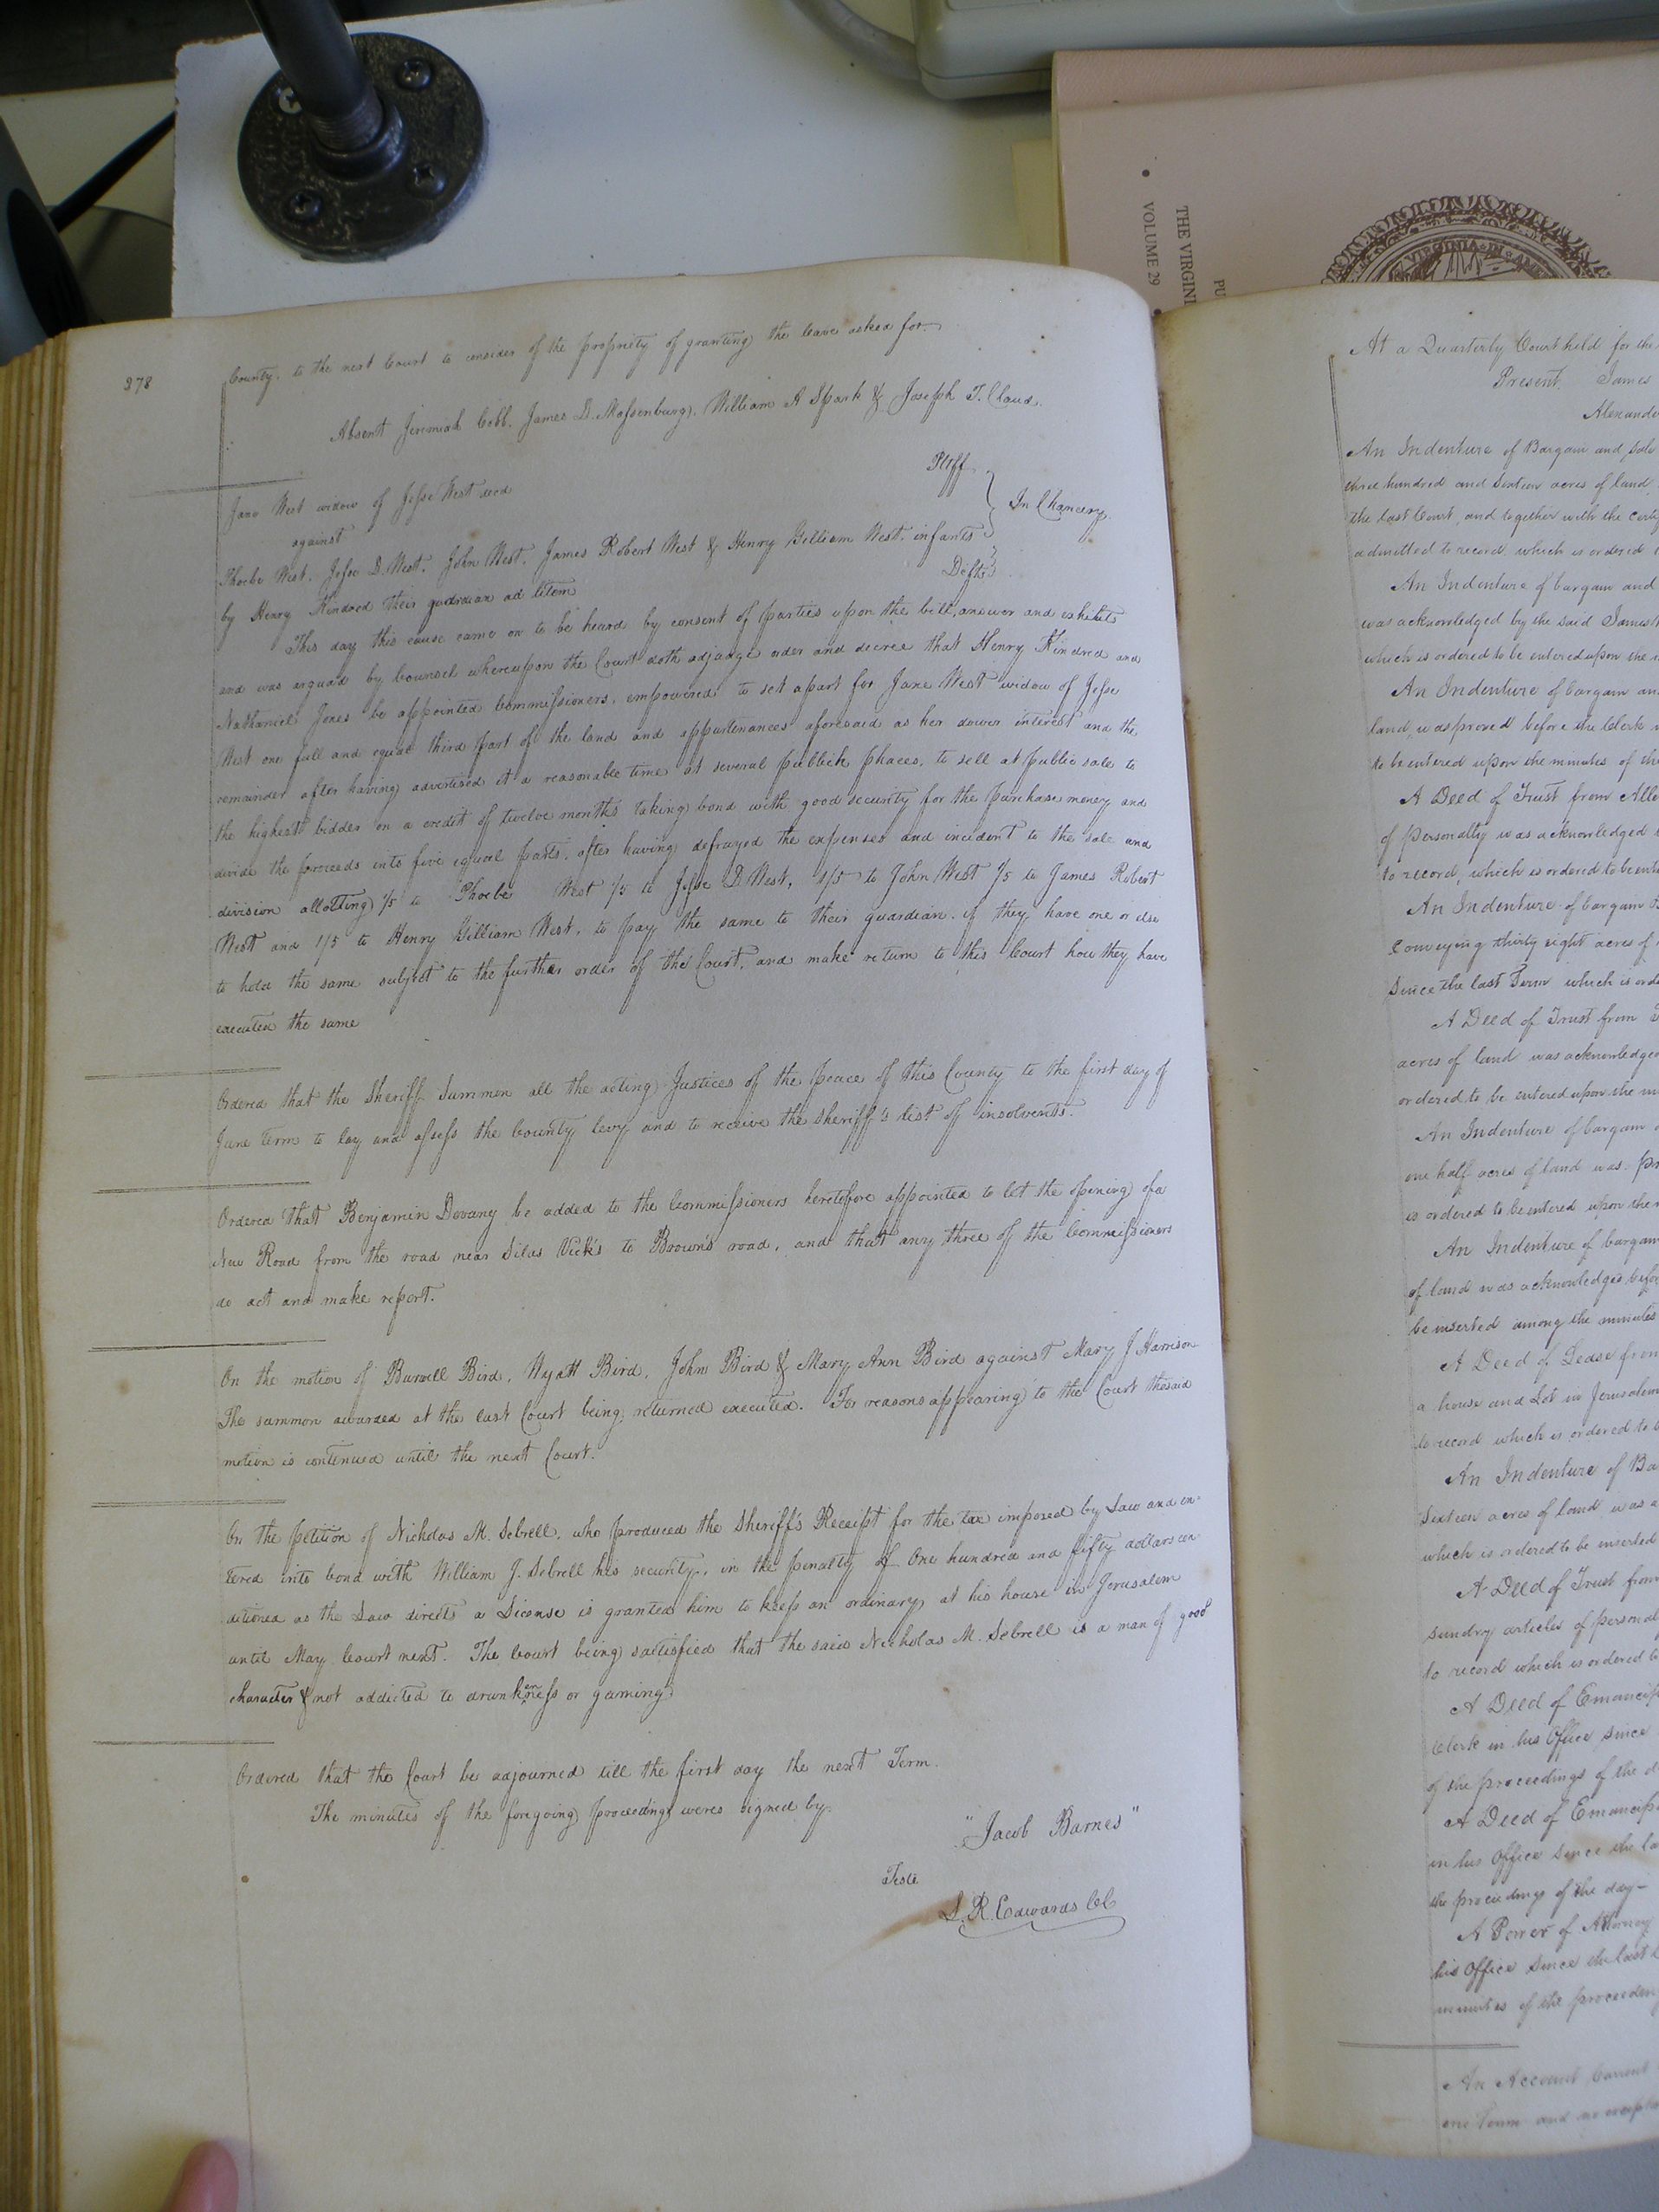 THE VIRGINI
VOLUME 29
PU
VIRGINIA IN
278
County, to the next Court to consider of the propriety of granting the leave asked for.
Absent Jeremiah Cobb, James D. Massenburg, William A Spark & Joseph T. Claud.
Jane West widow of Jesse West decd Pltff
against In Chancery.
Phoebe West, Jesse D. West, John West, James Robert West & Henry Gilliam West, infants
by Henry Kindred their guardian ad litem Defts
This day this cause came on to be heard by consent of parties upon the bill, answer and exhibits
and was argued by Counsel whereupon the Court doth adjudge order and decree that Henry Kindred and
Nathaniel Jones be appointed Commissioners, empowered to set apart for Jane West widow of Jesse
West one full and equal third part of the land and appurtenances aforesaid as her dower interest and the
remainder after having advertised it a reasonable time at several publick places, to sell at public sale to
the highest bidder on a credit of twelve months taking bond with good security for the purchase money and
divide the proceeds into five equal parts, after having defrayed the expenses and incident to the sale and
division allotting 1/5 to Phoebe West 1/5 to Jesse D. West, 1/5 to John West 1/5 to James Robert
West and 1/5 to Henry Gilliam West, to pay the same to their guardian if they have one or else
to hold the same subject to the further order of the Court, and make return to this Court how they have
executed the same
Ordered that the Sheriff Summon all the acting Justices of the peace of this County to the first day of
June term to lay and assess the County levy and to receive the sheriff's list of insolvents.
Ordered that Benjamin Devany be added to the Commissioners heretofore appointed to let the opening of a
New Road from the road near Silas Vick's to Brown's road, and that any three of the Commissioners
do act and make report.
On the motion of Burwell Bird, Wyatt Bird, John Bird & Mary Ann Bird against Mary J Harrison
The summon awarded at the last Court being returned executed. For reasons appearing to the Court the said
motion is continued until the next Court.
On the petition of Nicholas M. Sebrell, who produced the Sheriff's Receipt for the tax imposed by Law and en-
tered into bond with William J. Sebrell his security, in the penalty of One hundred and fifty dollars con-
ditioned as the Law directs a License is granted him to keep an ordinary at his house in Jerusalem
until May Court next. The Court being satisfied that the said Nicholas M. Sebrell is a man of good
character & not addicted to drunkenness or gaming
Ordered that the Court be adjourned till the first day the next Term.
The minutes of the foregoing proceedings were signed by
"Jacob Barnes"
Teste
L. R. Edwards CC
At a Quarterly Court held for the
Present James
An Indenture of Bargain and Sale
three hundred and sixteen acres of land,
the last Court, and together with the
admitted to record which is ordered
An Indenture of bargain and
was acknowledged by the said James
which is ordered to be entered upon the
An Indenture of bargain an
land, was proved before the Clerk
to be entered upon the minutes of the
A Deed of Trust from Alle
of personalty was acknowledged
to record, which is ordered to be ente
An Indenture of bargain
Conveying thirty eight acres of
Since the last Term which is orde
A Deed of Trust from
acres of land was acknowledged
ordered to be entered upon the
An Indenture of bargain
one half acres of land was pr
is ordered to be entered upon the
An Indenture of bargain
of land was acknowledged befo
be inserted among the minutes
A Deed of Lease from
a house and Lot in Jerusalem
to record which is ordered to
An Indenture of Ba
Sixteen acres of land was a
which is ordered to be inserted
A Deed of Trust from
Sundry articles of personal
to record which is ordered to
A Deed of Emancip
Clerk in his Office since
of the proceedings of the d
A Deed of Emancip
in his Office since the la
the proceedings of the day-
A Power of Attorney
his Office since the last
minutes of the proceeding
An Account Current
one Term and no excepti